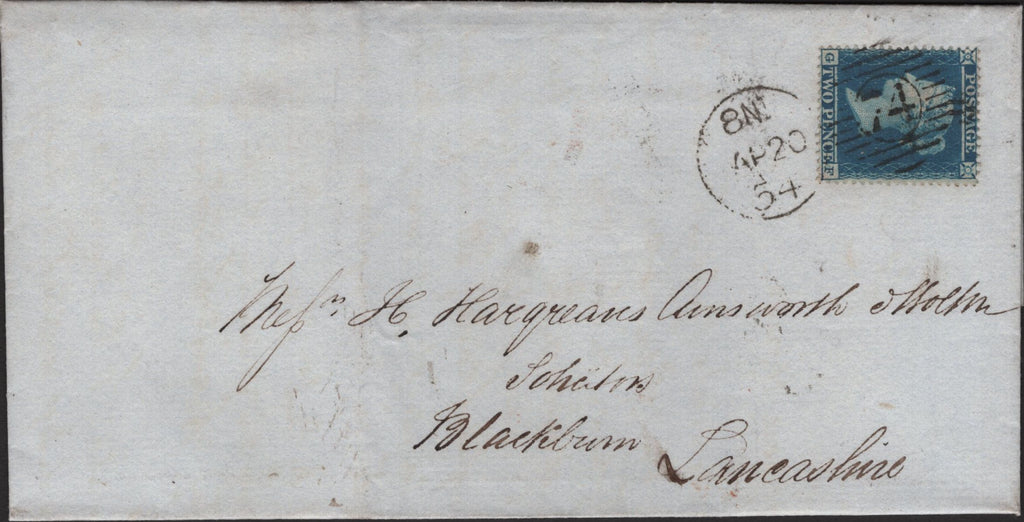 POSTAGE
G TWO PENCE F
74
8N
AP20
54
Messrs H. Hargreaves Ainsworth &
Solicitors
Blackburn
Lancashire